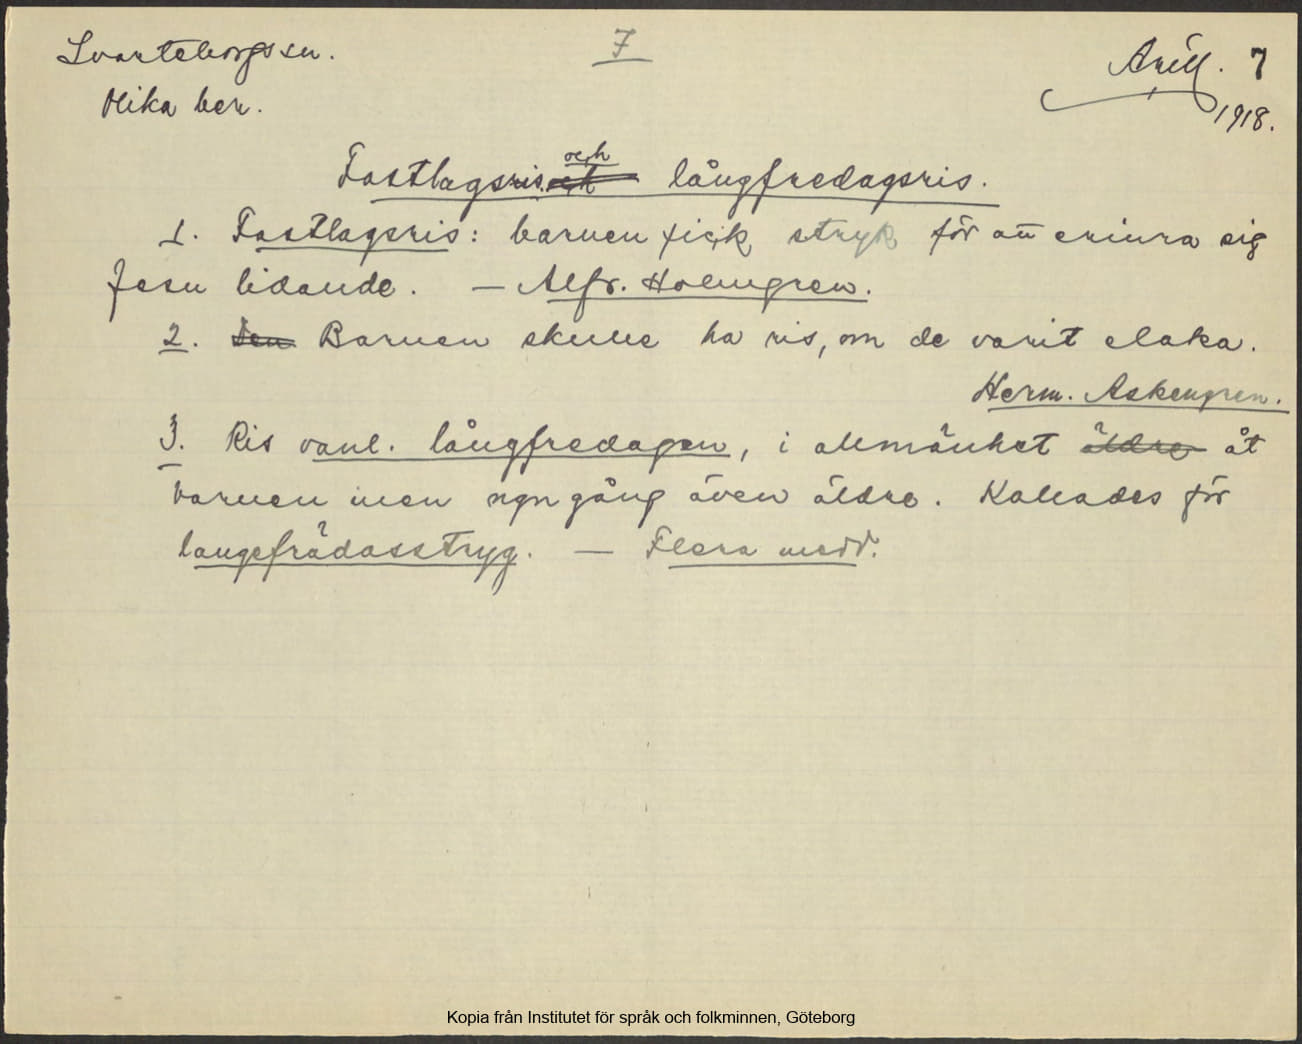 Svarteborgs sn.
7
Arill. 7
Olika ber.
1918.
och
Fastlagsris långfredagsris.
1. Fastlagsris: barnen fick stryk för att erinra sig
Jesu lidande. — Alfr. Holmgren.
2. Den Barnen skulle ha ris, om de varit elaka.
Herm. Askengren.
3. Ris vanl. långfredagen, i allmänhet äldre åt
barnen men ngn gång även äldre. Kallades för
langefrådasstryg. — Flera medd.
Kopia från Institutet för språk och folkminnen, Göteborg